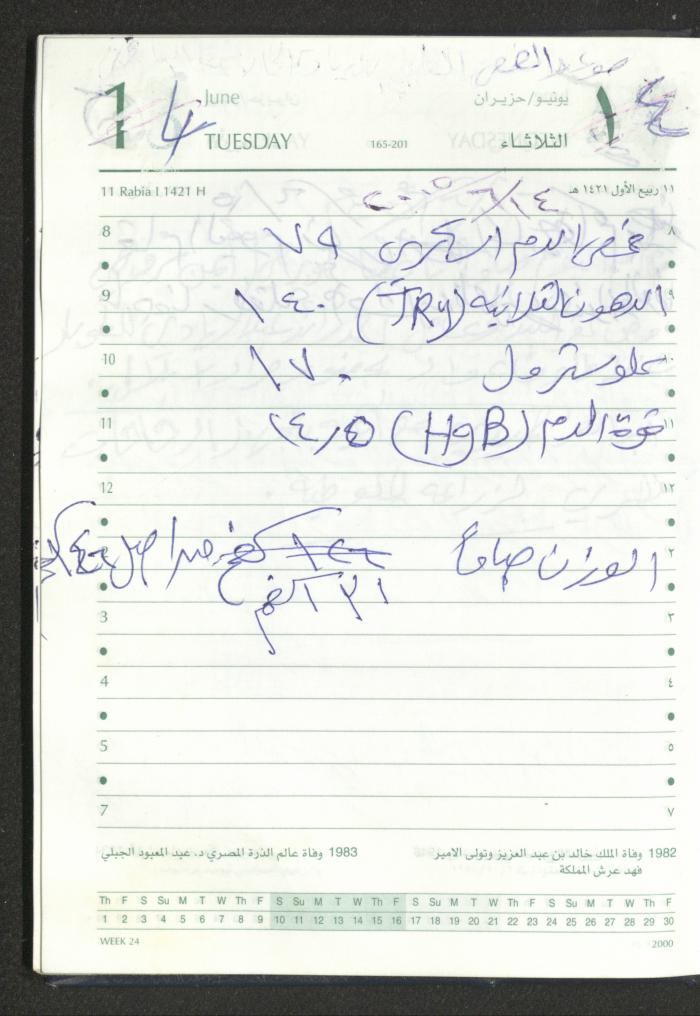 موعد الفحص
14 June يونيو/حزيران ١٤
TUESDAY 165-201 الثلاثاء
11 Rabia I 1421 H ١١ ربيع الأول ١٤٢١ هـ
٢٠٠٥/٦/١٤
8 فحص الدم السكري ٧٩ ٨
9 الدهون الثلاثية (TRy) ١٤٠ ٩
10 كلوسترول ١٧٠ ١٠
11 قوة الدم (HgB) ١٤٫٥ ١١
12 ١٢
الوزن صباحاً ١٢٦ كغم من اصل
١٣١ كغم
٢
3 ٣
4 ٤
5 ٥
7 ٧
1982 وفاة الملك خالد بن عبد العزيز وتولى الامير فهد عرش المملكة
1983 وفاة عالم الذرة المصري د. عبد المعبود الجبلي
Th F S Su M T W Th F S Su M T W Th F S Su M T W Th F S Su M T W Th F
1 2 3 4 5 6 7 8 9 10 11 12 13 14 15 16 17 18 19 20 21 22 23 24 25 26 27 28 29 30
WEEK 24 2000